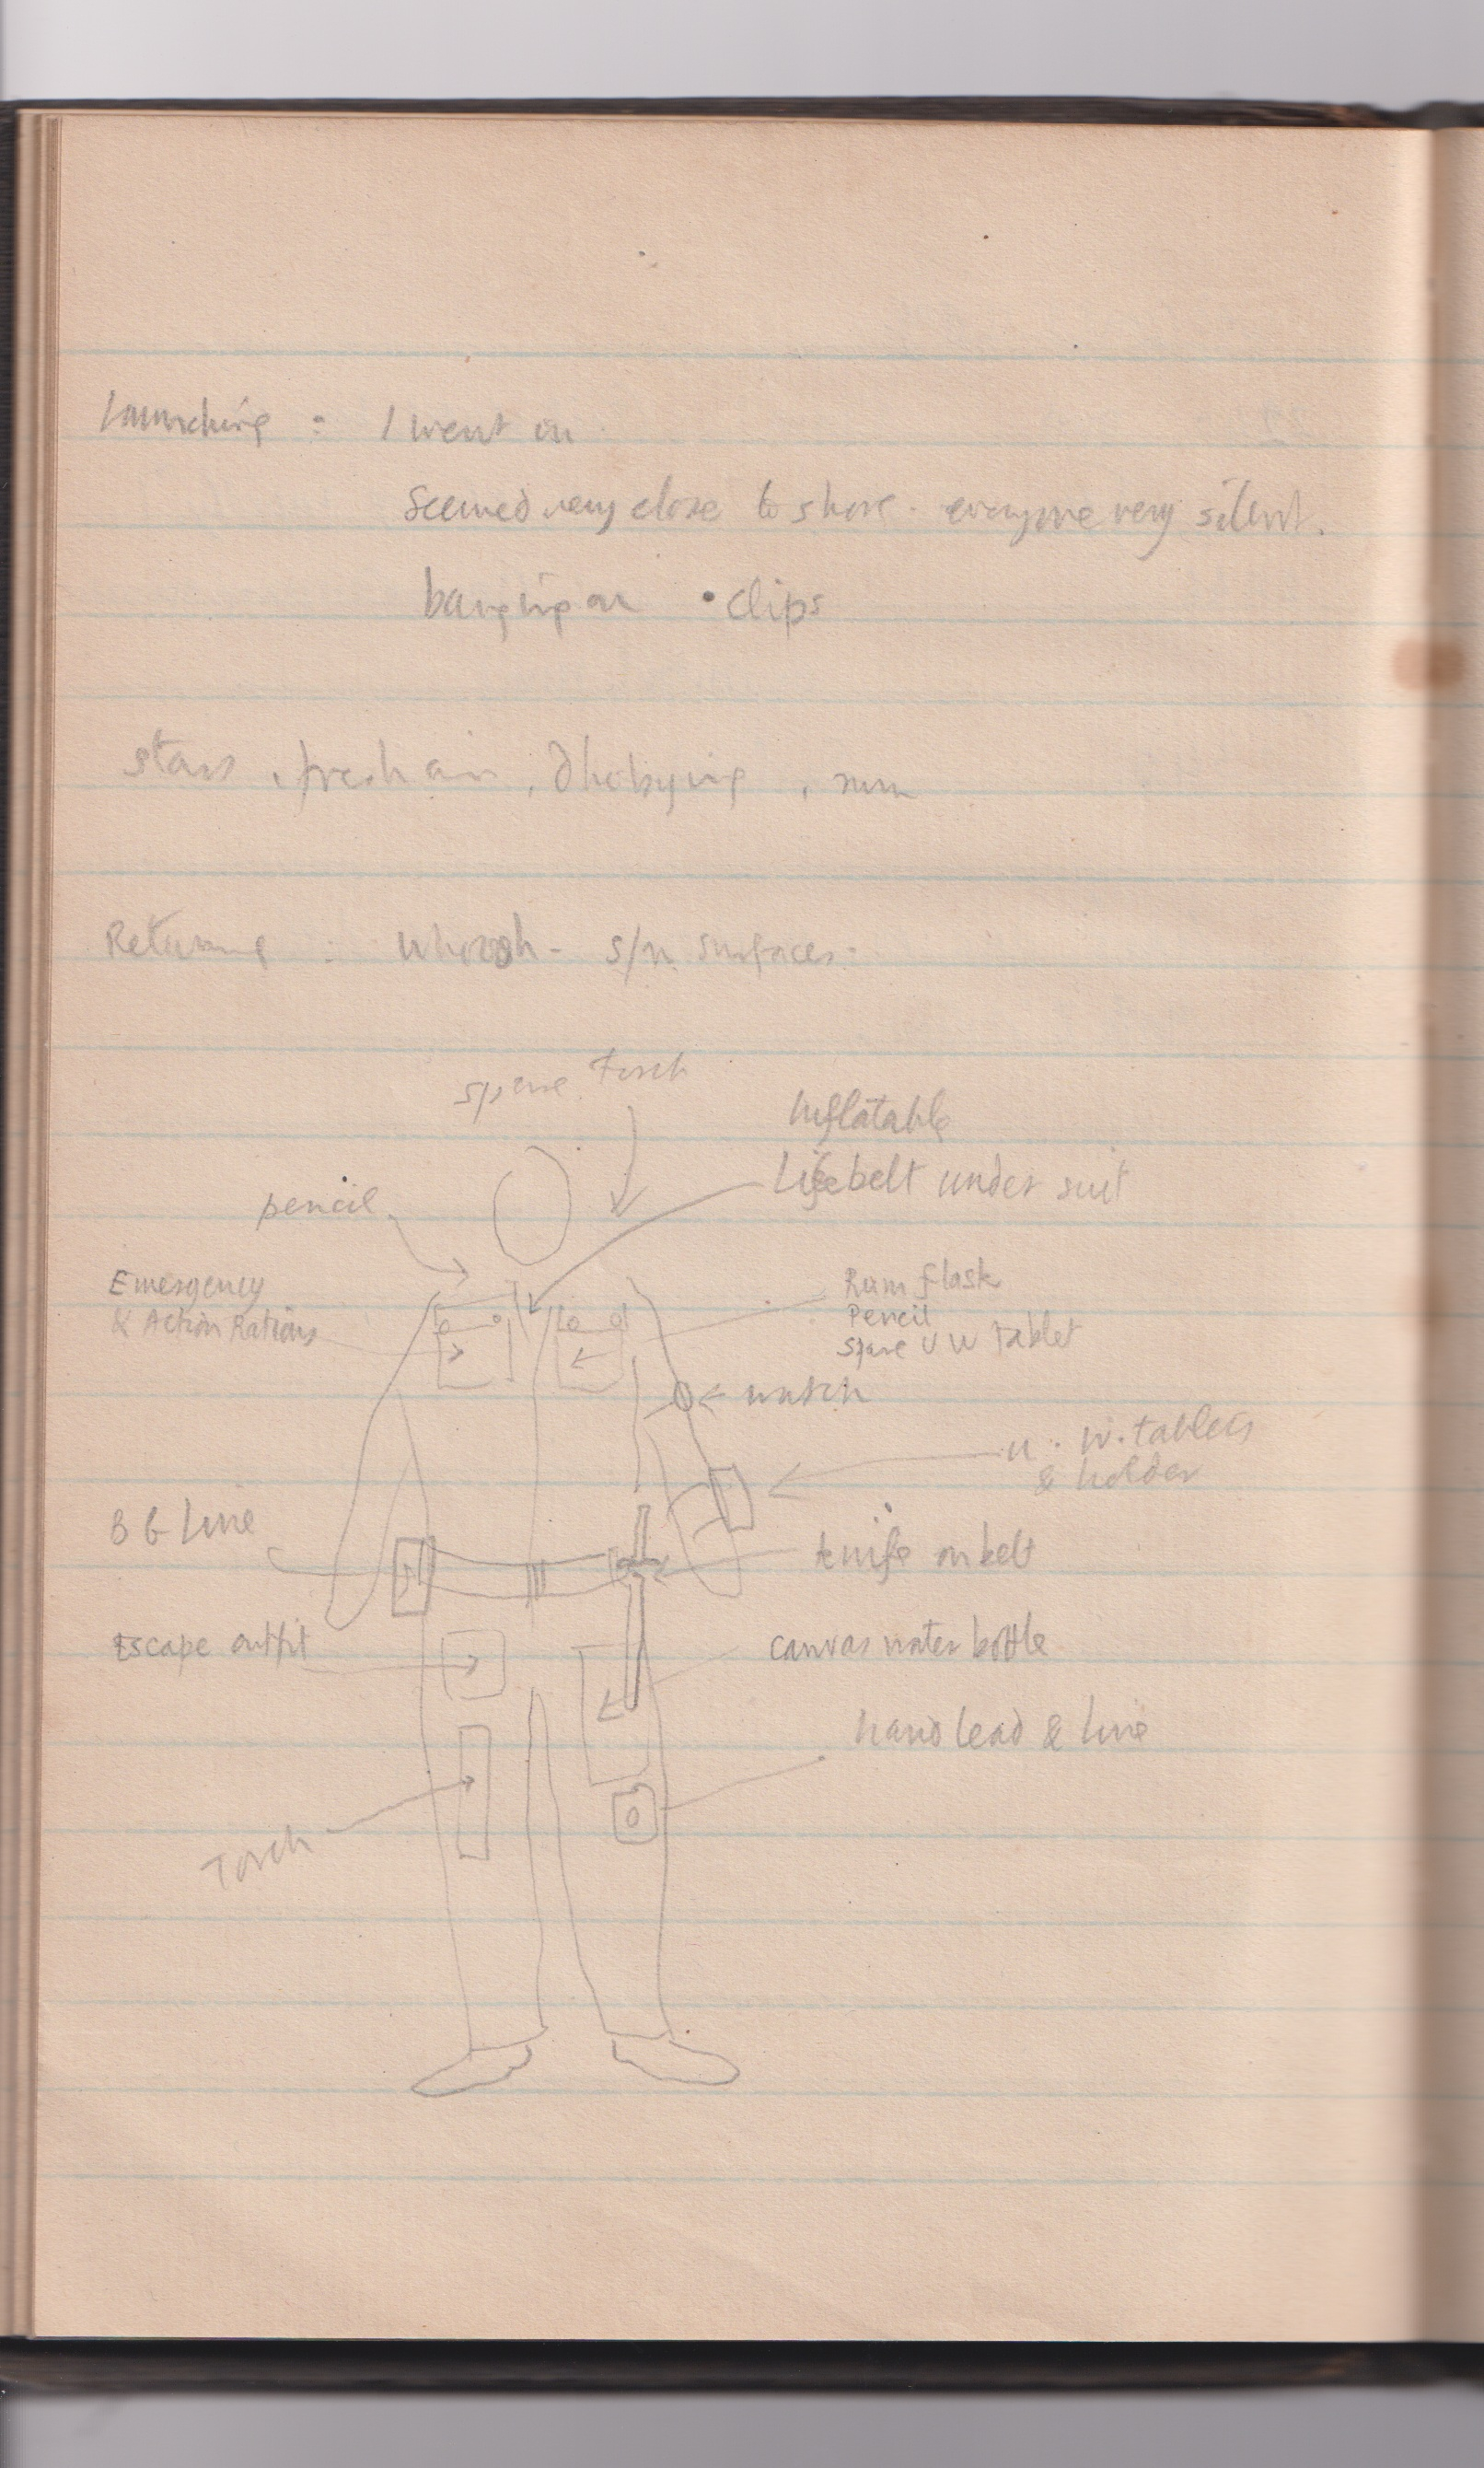 Launching : I went in
Seemed very close to shore. everyone very silent.
banging on • clips
stars, fresh air, dhobying, rum
Returning : Whoosh - s/m surfaces -
spare torch
Inflatable
Lifebelt under suit
pencil
Emergency
& Action Rations
Rum flask
Pencil
Spare U W Tablet
watch
u. w. tablets
& holder
B G Line
knife on belt
Escape outfit
canvas water bottle
hand lead & line
Torch